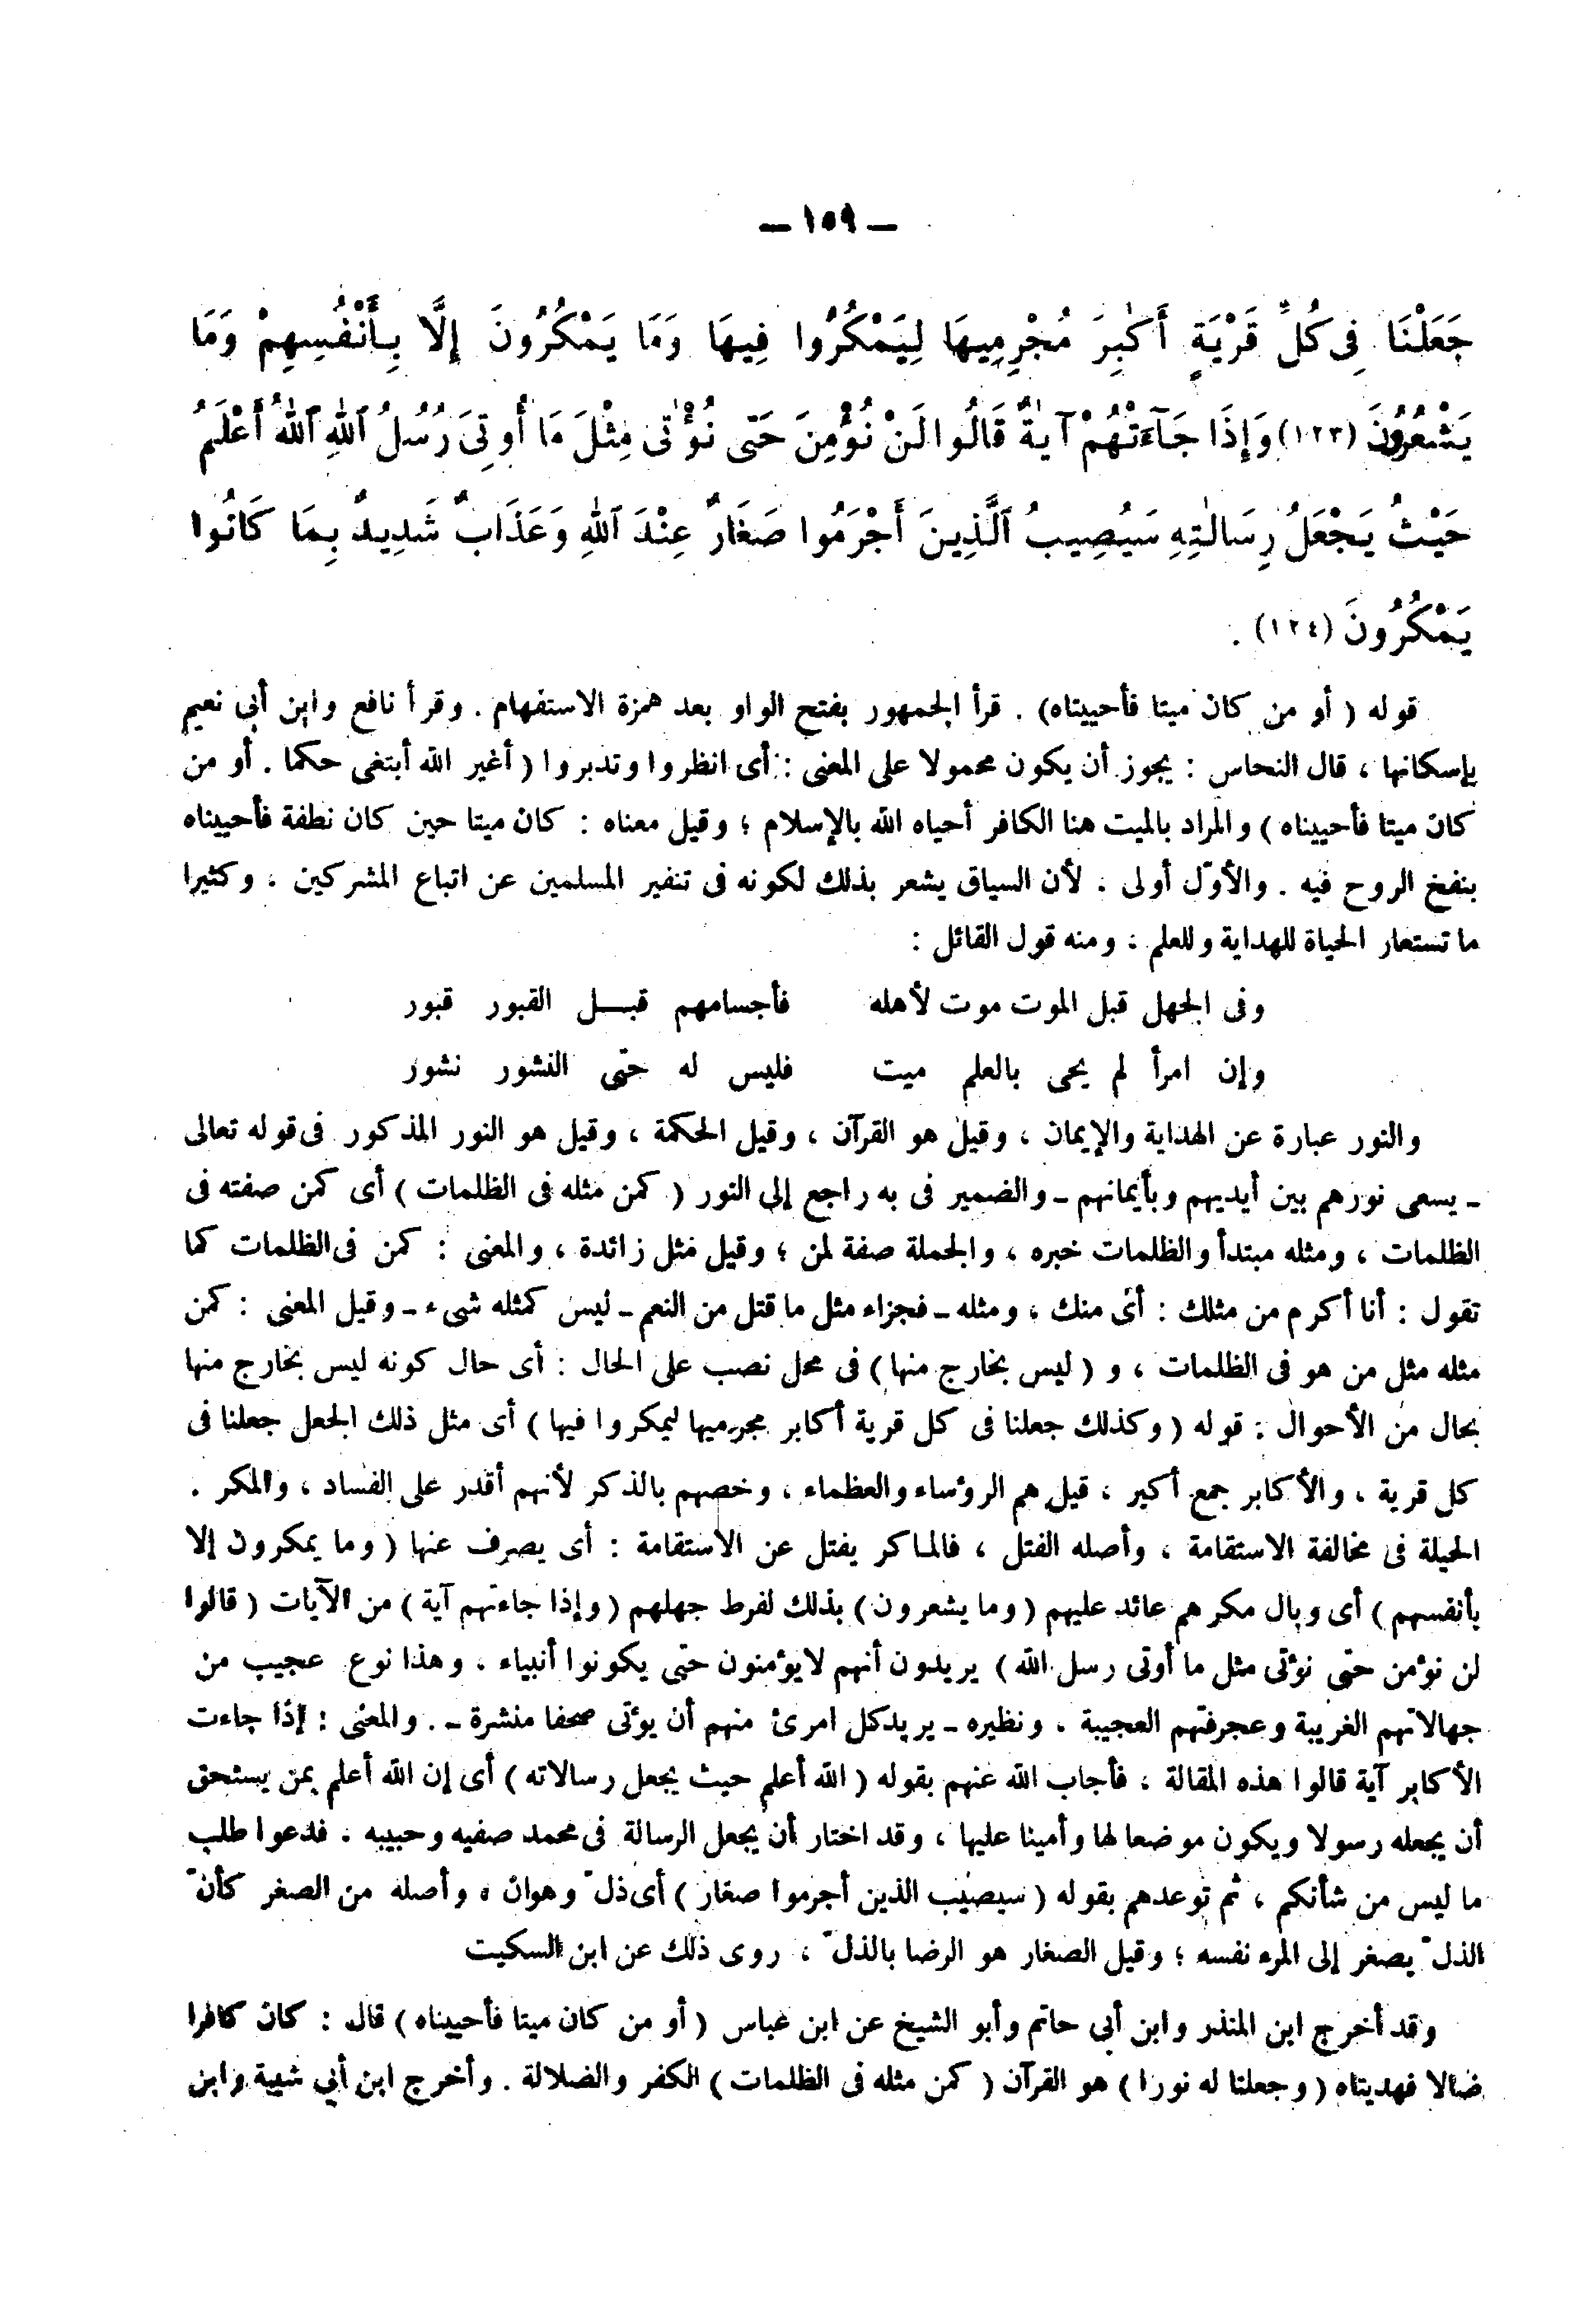 — ١٥٩ —
جَعَلْنَا فِى كُلِّ قَرْيَةٍ أَكَٰبِرَ مُجْرِمِيهَا لِيَمْكُرُوا فِيهَا وَمَا يَمْكُرُونَ إِلَّا بِأَنْفُسِهِمْ وَمَا
يَشْعُرُونَ (١٢٣) وَإِذَا جَآءَتْهُمْ آيَةٌ قَالُوا لَنْ نُؤْمِنَ حَتَّى نُؤْتَىٰ مِثْلَ مَا أُوتِىَ رُسُلُ ٱللهِ ٱللهُ أَعْلَمُ
حَيْثُ يَجْعَلُ رِسَالَٰتِهِ سَيُصِيبُ ٱلَّذِينَ أَجْرَمُوا صَغَارٌ عِنْدَ ٱللهِ وَعَذَابٌ شَدِيدٌ بِمَا كَانُوا
يَمْكُرُونَ (١٢٤) .
قوله ( أو من كان ميتا فأحييناه) . قرأ الجمهور بفتح الواو بعد همزة الاستفهام . وقرأ نافع وابن أبى نعيم
بإسكانها ، قال النحاس : يجوز أن يكون محمولا على المعنى : أى انظروا وتدبروا ( أغير الله أبتغى حكما . أو من
كان ميتا فأحييناه ) والمراد بالميت هنا الكافر أحياه الله بالإسلام ؛ وقيل معناه : كان ميتا حين كان نطفة فأحييناه
بنفخ الروح فيه . والأوّل أولى ، لأن السياق يشعر بذلك لكونه فى تنفير المسلمين عن اتباع المشركين ، وكثيرا
ما تستعار الحياة للهداية وللعلم ، ومنه قول القائل :
وفى الجهل قبل الموت موت لأهله فأجسامهم قبـــل القبور قبور
وإن امرأ لم يحى بالعلم ميت فليس له حتّى النشور نشور
والنور عبارة عن الهداية والإيمان ، وقيل هو القرآن ، وقيل الحكمة ، وقيل هو النور المذكور فى قوله تعالى
ـ يسعى نورهم بين أيديهم وبأيمانهم ـ والضمير فى به راجع إلى النور ( كمن مثله فى الظلمات ) أى كمن صفته فى
الظلمات ، ومثله مبتدأ والظلمات خبره ، والجملة صفة لمن ؛ وقيل مثل زائدة ، والمعنى : كمن فى الظلمات كما
تقول : أنا أكرم من مثلك : أى منك ، ومثله ـ فجزاء مثل ما قتل من النعم ـ ليس كمثله شىء ـ وقيل المعنى : كمن
مثله مثل من هو فى الظلمات ، و ( ليس بخارج منها ) فى محل نصب على الحال : أى حال كونه ليس بخارج منها
بحال من الأحوال : قوله ( وكذلك جعلنا فى كل قرية أكابر مجرميها ليمكروا فيها ) أى مثل ذلك الجعل جعلنا فى
كل قرية ، والأكابر جمع أكبر ، قيل هم الرؤساء والعظماء ، وخصهم بالذكر لأنهم أقدر على الفساد ، والمكر .
الحيلة فى مخالفة الاستقامة ، وأصله الفتل ، فالماكر يفتل عن الاستقامة : أى يصرف عنها ( وما يمكرون إلا
بأنفسهم ) أى وبال مكرهم عائد عليهم ( وما يشعرون ) بذلك لفرط جهلهم ( وإذا جاءتهم آية ) من الآيات ( قالوا
لن نؤمن حتى نؤتى مثل ما أوتى رسل الله ) يريدون أنهم لايؤمنون حتى يكونوا أنبياء ، وهذا نوع عجيب من
جهالاتهم الغريبة وعجرفتهم العجيبة ، ونظيره ـ يريد كل امرئ منهم أن يؤتى صحفا منشرة ـ . والمعنى : إذا جاءت
الأكابر آية قالوا هذه المقالة ، فأجاب الله عنهم بقوله ( الله أعلم حيث يجعل رسالاته ) أى إن الله أعلم بمن يستحق
أن يجعله رسولا ويكون موضعا لها وأمينا عليها ، وقد اختار أن يجعل الرسالة فى محمد صفيه وحبيبه ، فدعوا طلب
ما ليس من شأنكم ، ثم توعدهم بقوله ( سيصيب الذين أجرموا صغار ) أى ذلّ وهوان ، وأصله من الصغر كأنّ
الذلّ يصغر إلى المرء نفسه ؛ وقيل الصغار هو الرضا بالذلّ ، روى ذلك عن ابن السكيت
وقد أخرج ابن المنذر وابن أبى حاتم وأبو الشيخ عن ابن عباس ( أو من كان ميتا فأحييناه ) قال : كان كافرا
ضالا فهديناه ( وجعلنا له نورا ) هو القرآن ( كمن مثله فى الظلمات ) الكفر والضلالة . وأخرج ابن أبي شيبة وابن